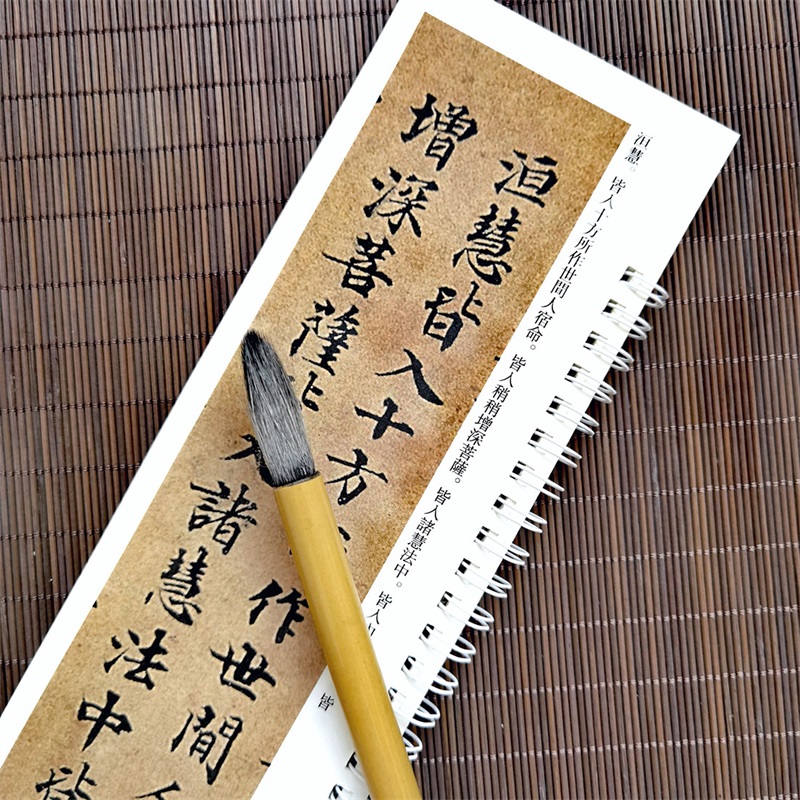 洹慧。皆入十方所作世間人宿命。皆入稍稍增深菩薩。皆入諸慧法中。皆入
皆
洹慧皆入十方作世間
增深菩薩皆入諸慧法中皆